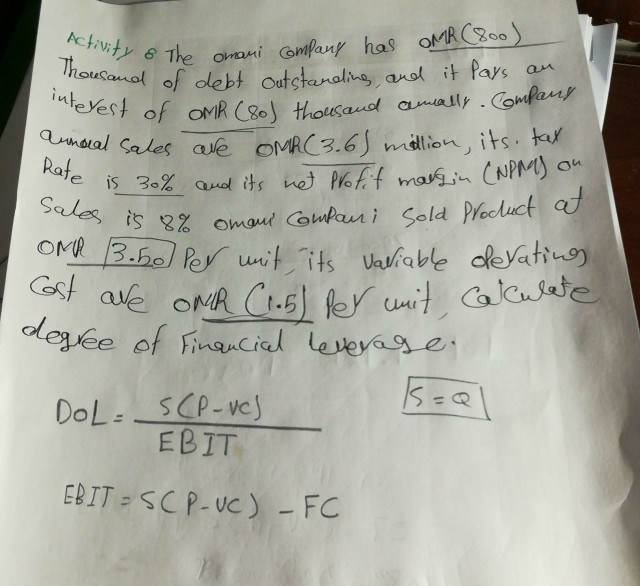 Activity 8 The omani Company has OMR(800)
Thousand of debt outstanding, and it Pays an
interest of OMR(80) thousand annually. Company
annual Sales are OMR(3.6) million, its. tax
Rate is 30% and its net Profit margin (NPM) on
Sales is 8% omani Compani Sold Product at
OMR 3.50 Per unit, its variable operating
Cost are OMR (1.5) Per unit, Calculate
degree of Financial leverage.
DOL = S(P-VC)
EBIT
S = Q
EBIT = S(P-VC) - FC